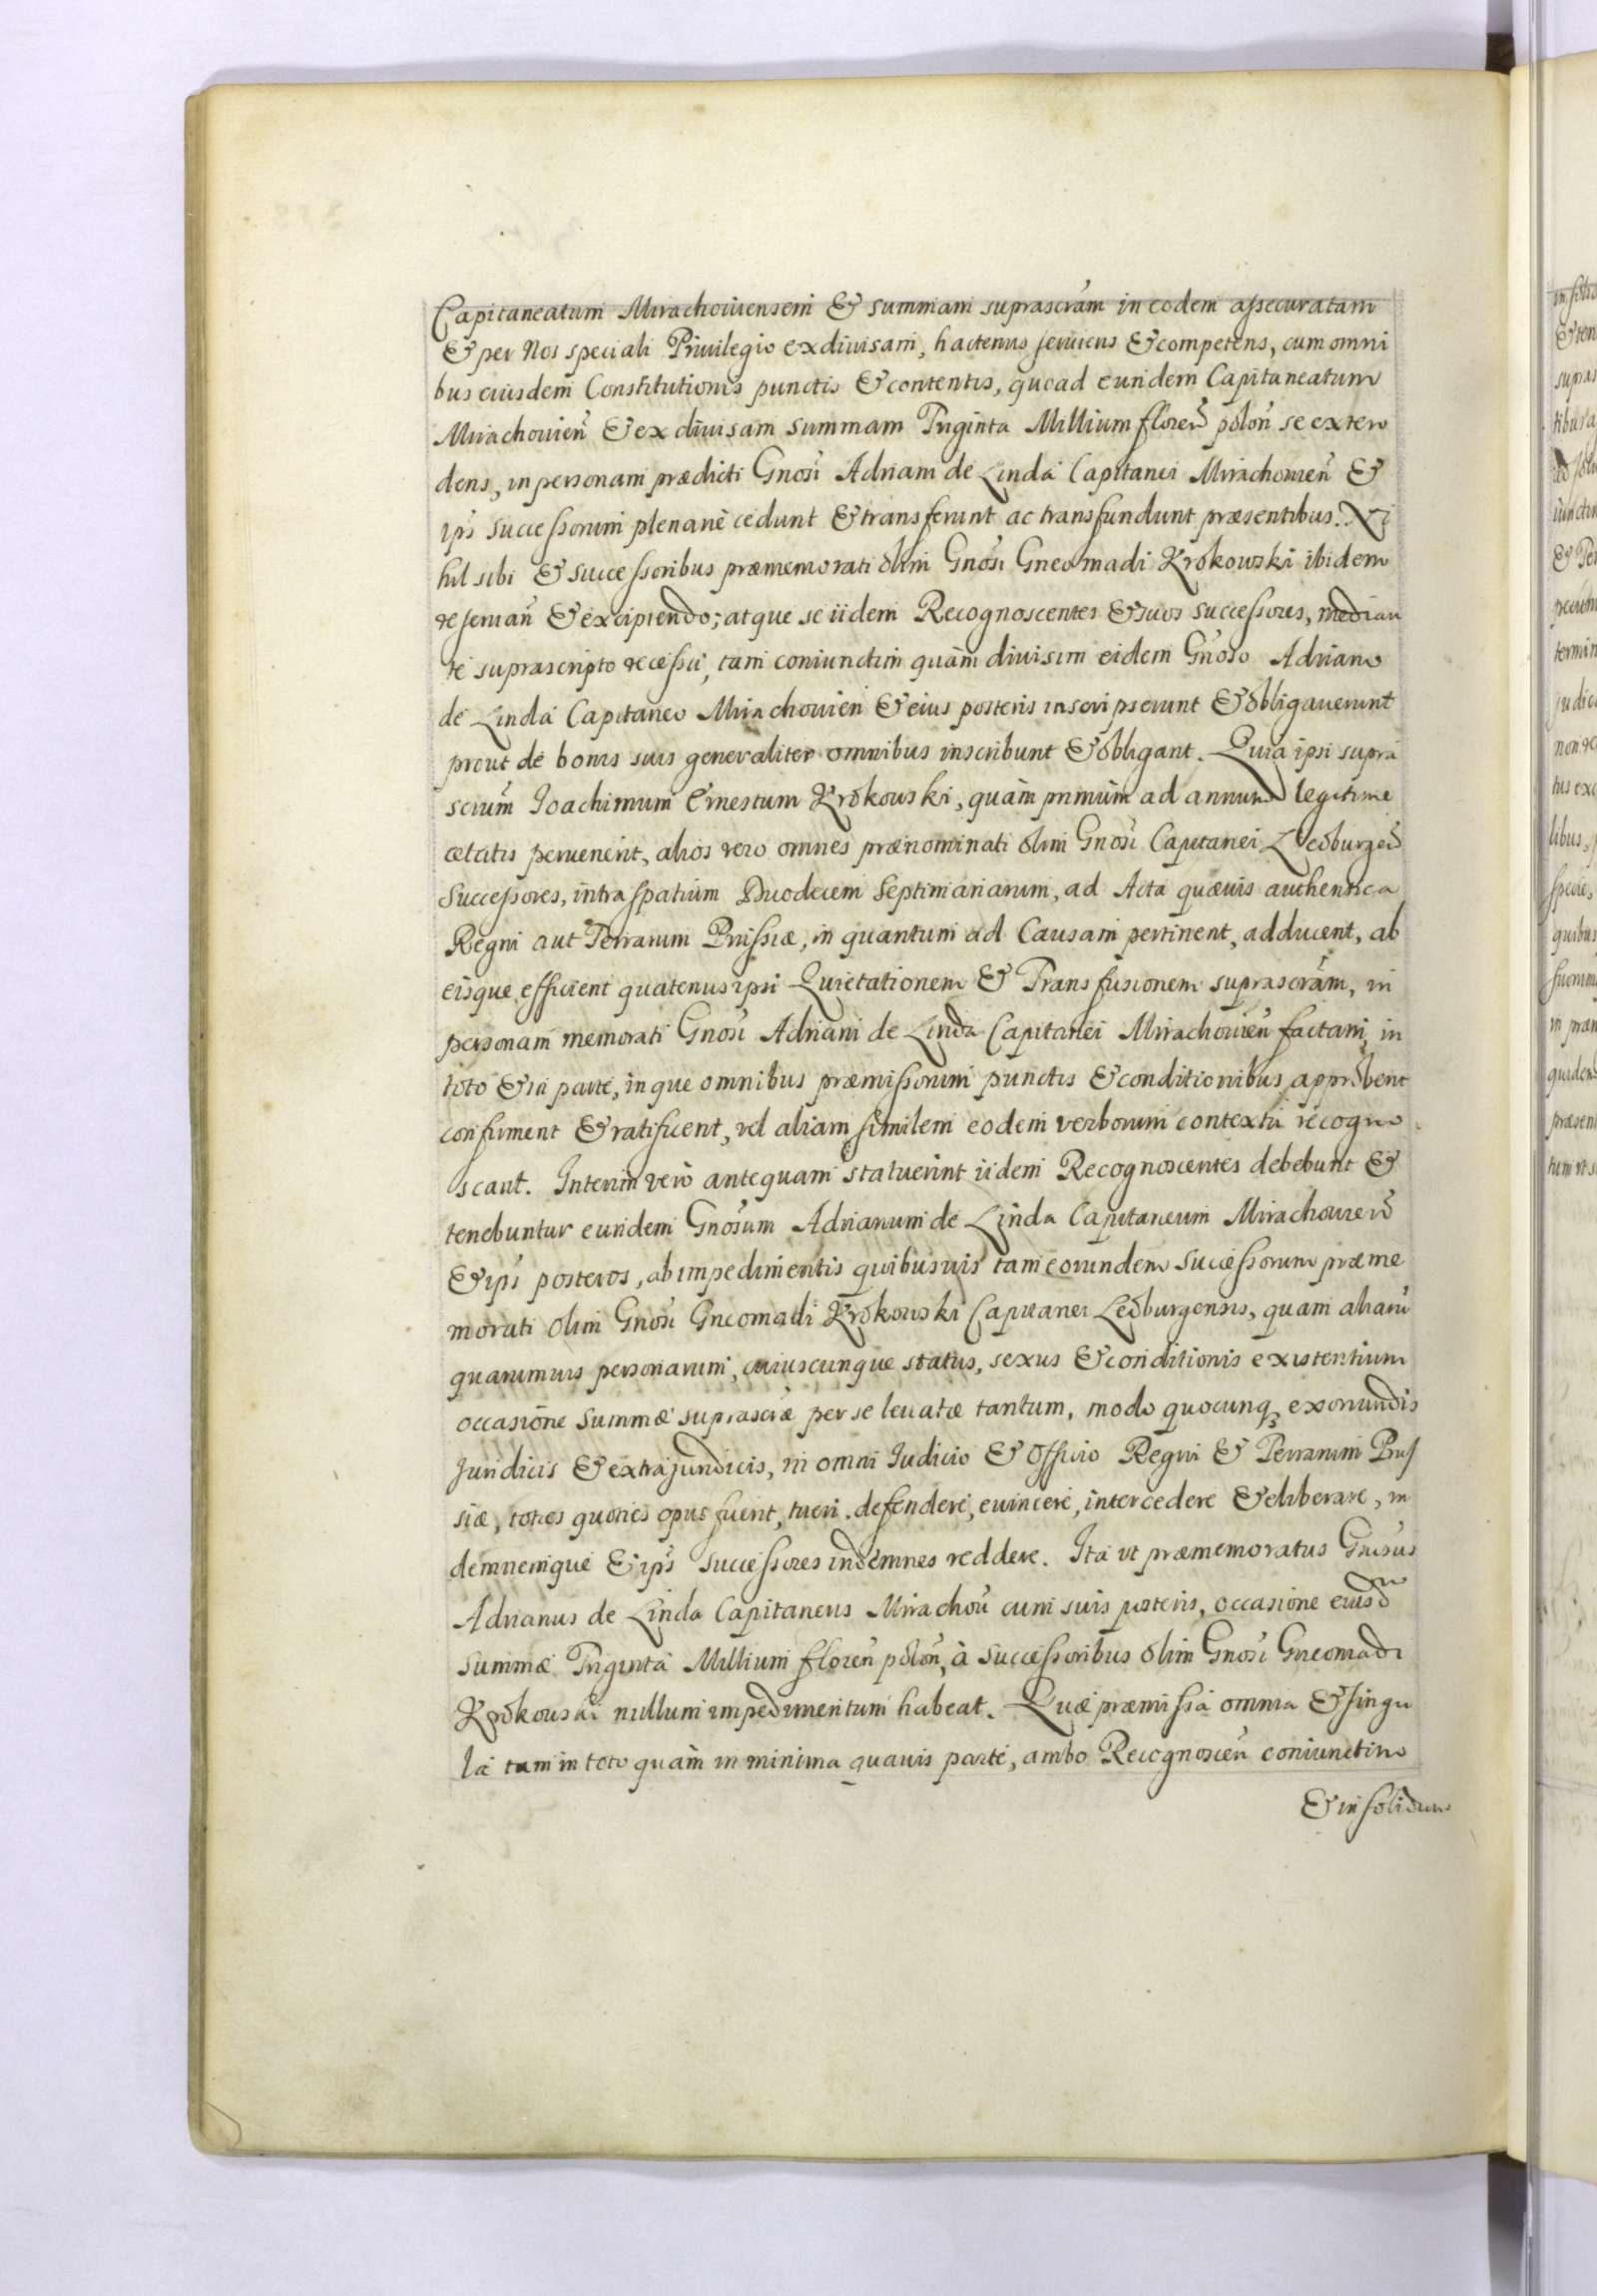 Capitaneatum Mirachouiensem & summam suprascram in eodem assecuratam
& per Nos speciali Priuilegio exdiuisam, hactenus seruiens & competens, cum omni
bus eiusdem Constitutionis punctis & contentis, quoad eundem Capitaneatum
Mirachouien̄ & ex diuisam summam Triginta Millium floren̄ polon̄ se exten
dens, in personam prædicti Gnosi Adriani de Linda Capitanei Mirachouien̄ &
ips̄ successorum plenariè cedunt & transferunt ac transfundunt præsentibus. Ni
hil sibi & successoribus præmemorati olim Gnosi Gneomadi Krokowski ibidem
reseruan̄ & excipiendo; atque se iidem Recognoscentes & suos successores, median
te suprascripto recessu, tam coniunctim quàm diuisim eidem Gnoso Adriano
de Linda Capitaneo Mirachouien̄ & eius posteris inscripserunt & obligauerunt
prout de bonis suis generaliter omnibus inscribunt & obligant. Quia ipsi supra
scrum Joachimum Ernestum Krokouski, quàm primùm ad annum legitimæ
ætatis peruenerit, alios vero omnes prænominati olim Gnosi Capitanei Leoburgen̄
successores, intra spatium Duodecem Septimanarum, ad Acta quæuis authentica
Regni aut Terrarum Prussiæ, in quantum ad Causam pertinent, adducent, ab
eisque efficient quatenus ipsi Quietationem & Transfusionem suprascram, in
personam memorati Gnosi Adriani de Linda Capitanei Mirachouien̄ factam, in
toto & in parte, in que omnibus præmissorum punctis & conditionibus approbent
confirment & ratificent, vel aliam similem eodem verborum contextu recogno
scant. Interim verò antequam statuerint iidem Recognoscentes debebunt &
tenebuntur eundem Gnosum Adrianum de Linda Capitaneum Mirachouien̄
& ips̄ posteros, ab impedimentis quibusuis tam eorundem successorum præme
morati olim Gnosi Gneomadi Krokouski Capitanei Leoburgensis, quam aliarū
quarumuis personarum, cuiuscunque status, sexus & conditionis existentium
occasione summæ suprascræ per se leuatæ tantum, modo quocunq̨ exoriundis
Juridicis & extrajuridicis, in omni Judicio & Officio Regni & Terrarum Prus
siæ, toties quoties opus fuerit, tueri, defendere, euincere, intercedere & eliberare, in
demnemque & ips̄ successores indemnes reddere. Ita vt præmemoratus Gnosus
Adrianus de Linda Capitaneus Mirachou̅ cum suis posteris, occasione eiusd̄
summæ Triginta Millium floren̄ polon̄, à successoribus olim Gnosi Gneomadi
Krokouski nullum impedimentum habeat. Quæ præmissa omnia & singu
la tam in toto quàm in minima quauis parte, ambo Recognoscen̄ coniunctim
& in solidum